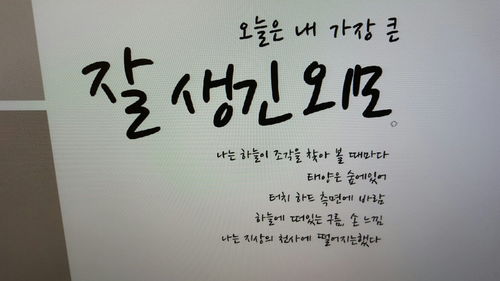 오늘은 내 가장 큰
잘 생긴 외모
나는 하늘이 조각을 찾아 볼 때마다
태양은 숲에있어
터치 하드 측면에 바람
하늘에 떠있는 구름, 손 느낌
나는 지상의 천사에 떨어지는했다